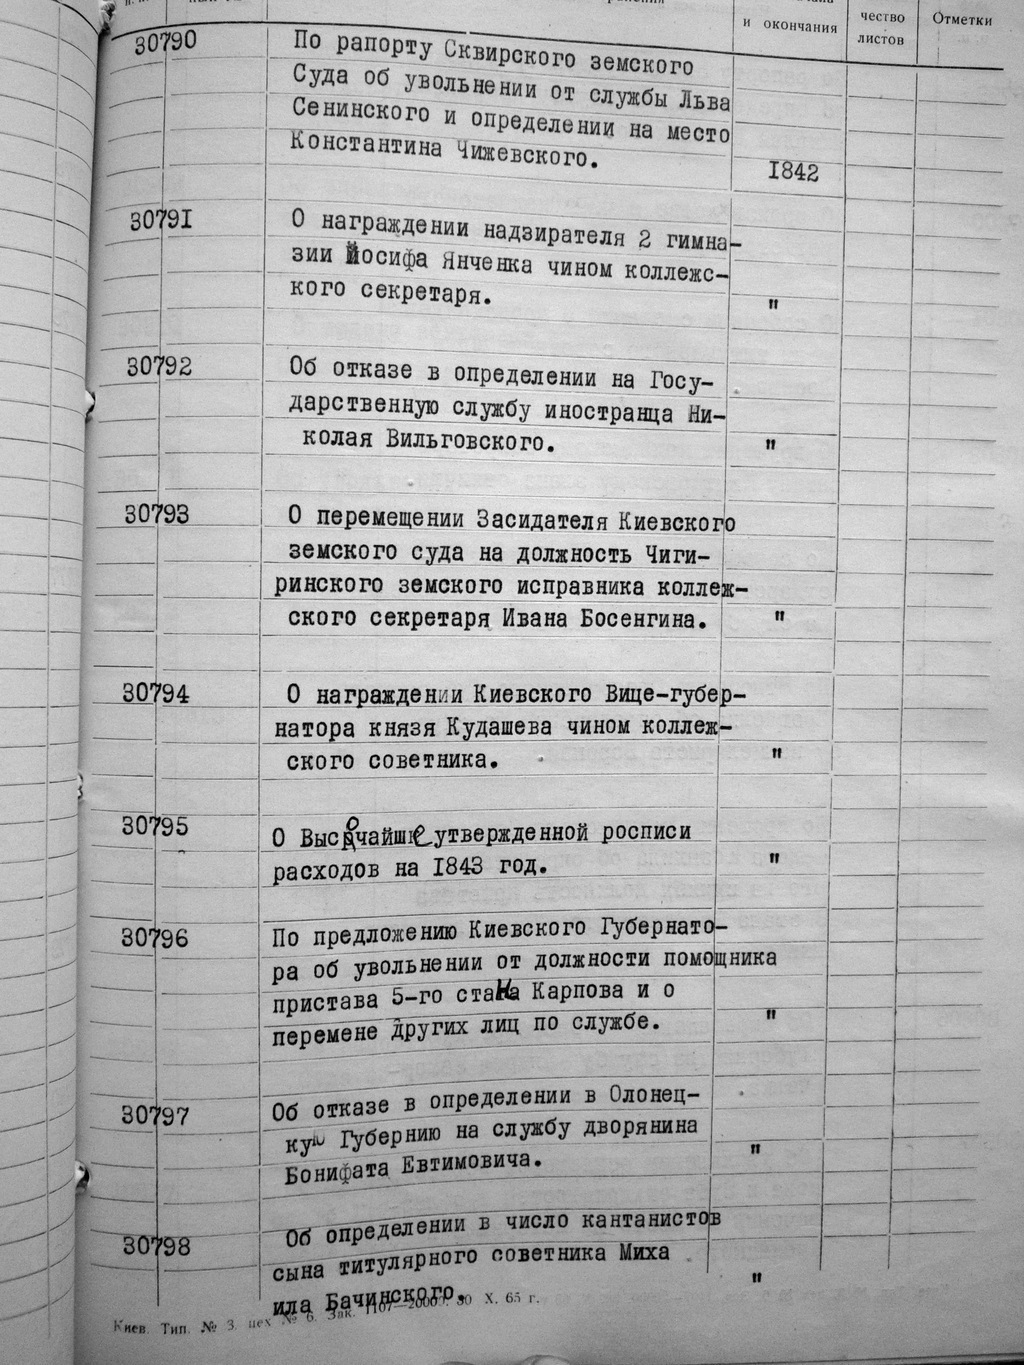 и окончания
чество
листов
Отметки
30790
По рапорту Сквирского земского
Суда об увольнении от службы Льва
Сенинского и определении на место
Константина Чижевского.
1842
30791
О награждении надзирателя 2 гимна-
зии Йосифа Янченка чином коллежс-
кого секретаря.
"
30792
Об отказе в определении на Госу-
дарственную службу иностранца Ни-
колая Вильговского.
"
30793
О перемещении Засидателя Киевского
земского суда на должность Чиги-
ринского земского исправника коллеж-
ского секретаря Ивана Босенгина.
"
30794
О награждении Киевского Вице-губер-
натора князя Кудашева чином коллеж-
ского советника.
"
30795
О Высочайше утвержденной росписи
расходов на 1843 год.
"
30796
По предложению Киевского Губернато-
ра об увольнении от должности помощника
пристава 5-го стана Карпова и о
перемене других лиц по службе.
"
30797
Об отказе в определении в Олонец-
кую Губернию на службу дворянина
Бонифата Евтимовича.
"
30798
Об определении в число кантанистов
сына титулярного советника Миха
ила Бачинского.
"
Киев. Тип. № 3. цех № 6. Зак. 1107—20000. 30 X. 65 г.